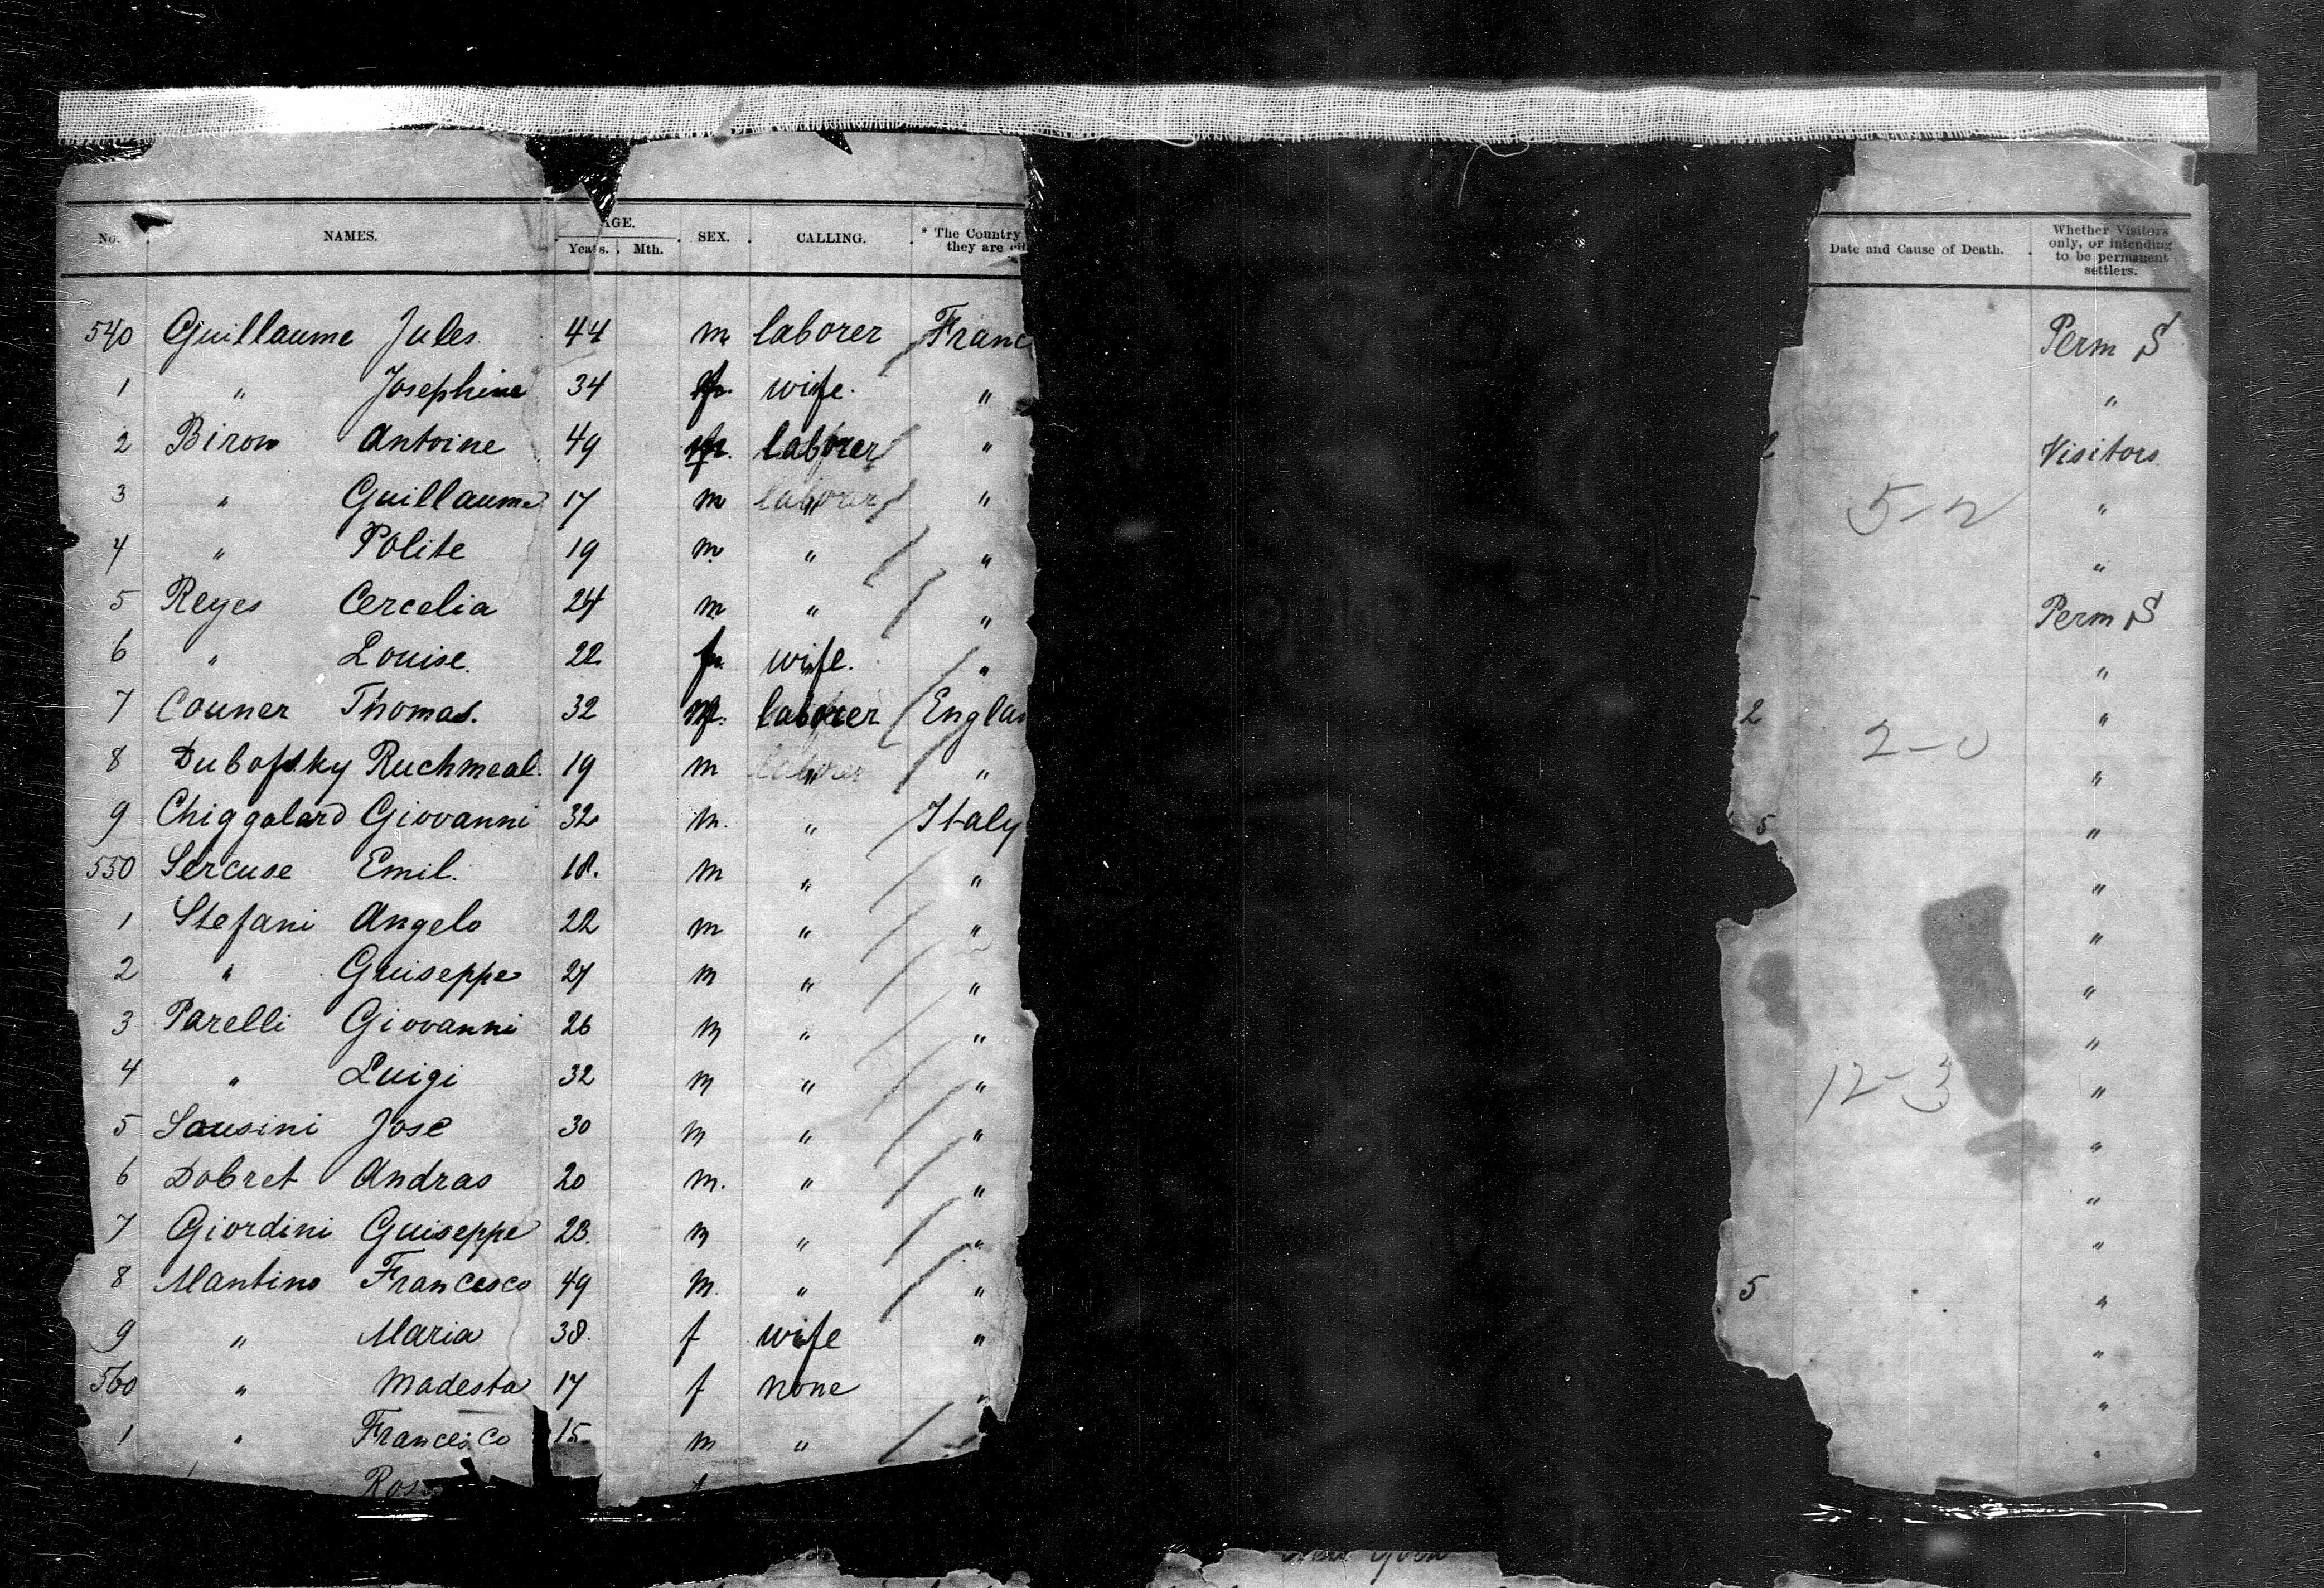 No. NAMES. AGE. Years. Mth. SEX. CALLING. * The Country they are Date and Cause of Death. Whether Visitors only, or intending to be permanent settlers.
540 Guillaume Jules 44 m laborer Franc Perm S
1 " Josephine 34 f wife. " "
2 Biron Antoine 49 m laborer " 2 Visitors
3 " Guillaume 17 m laborer " 5-2 "
4 " Polite 19 m " " "
5 Reyes Cercelia 24 m " " Perm S
6 " Louise. 22 f wife. " "
7 Couner Thomas. 32 m laborer Englan 2 "
8 Dubofsky Ruchmeal. 19 m laborer " 2-0 "
9 Chiggolard Giovanni 32 m. " Italy 5 "
550 Sercuse Emil. 18. m " " "
1 Stefani Angelo 22 m " " "
2 " Guiseppe 27 m " " "
3 Parelli Giovanni 26 m " " "
4 " Luigi 32 m " " 12-3 "
5 Sousini Jose 30 m " " "
6 Dobret Andras 20 m. " " "
7 Giordini Guiseppe 23. m " " "
8 Mantino Francesco 49 m. " " 5 "
9 " Maria 38. f wife " "
560 " Modesta 17 f none " "
1 " Francesco 15 m " "